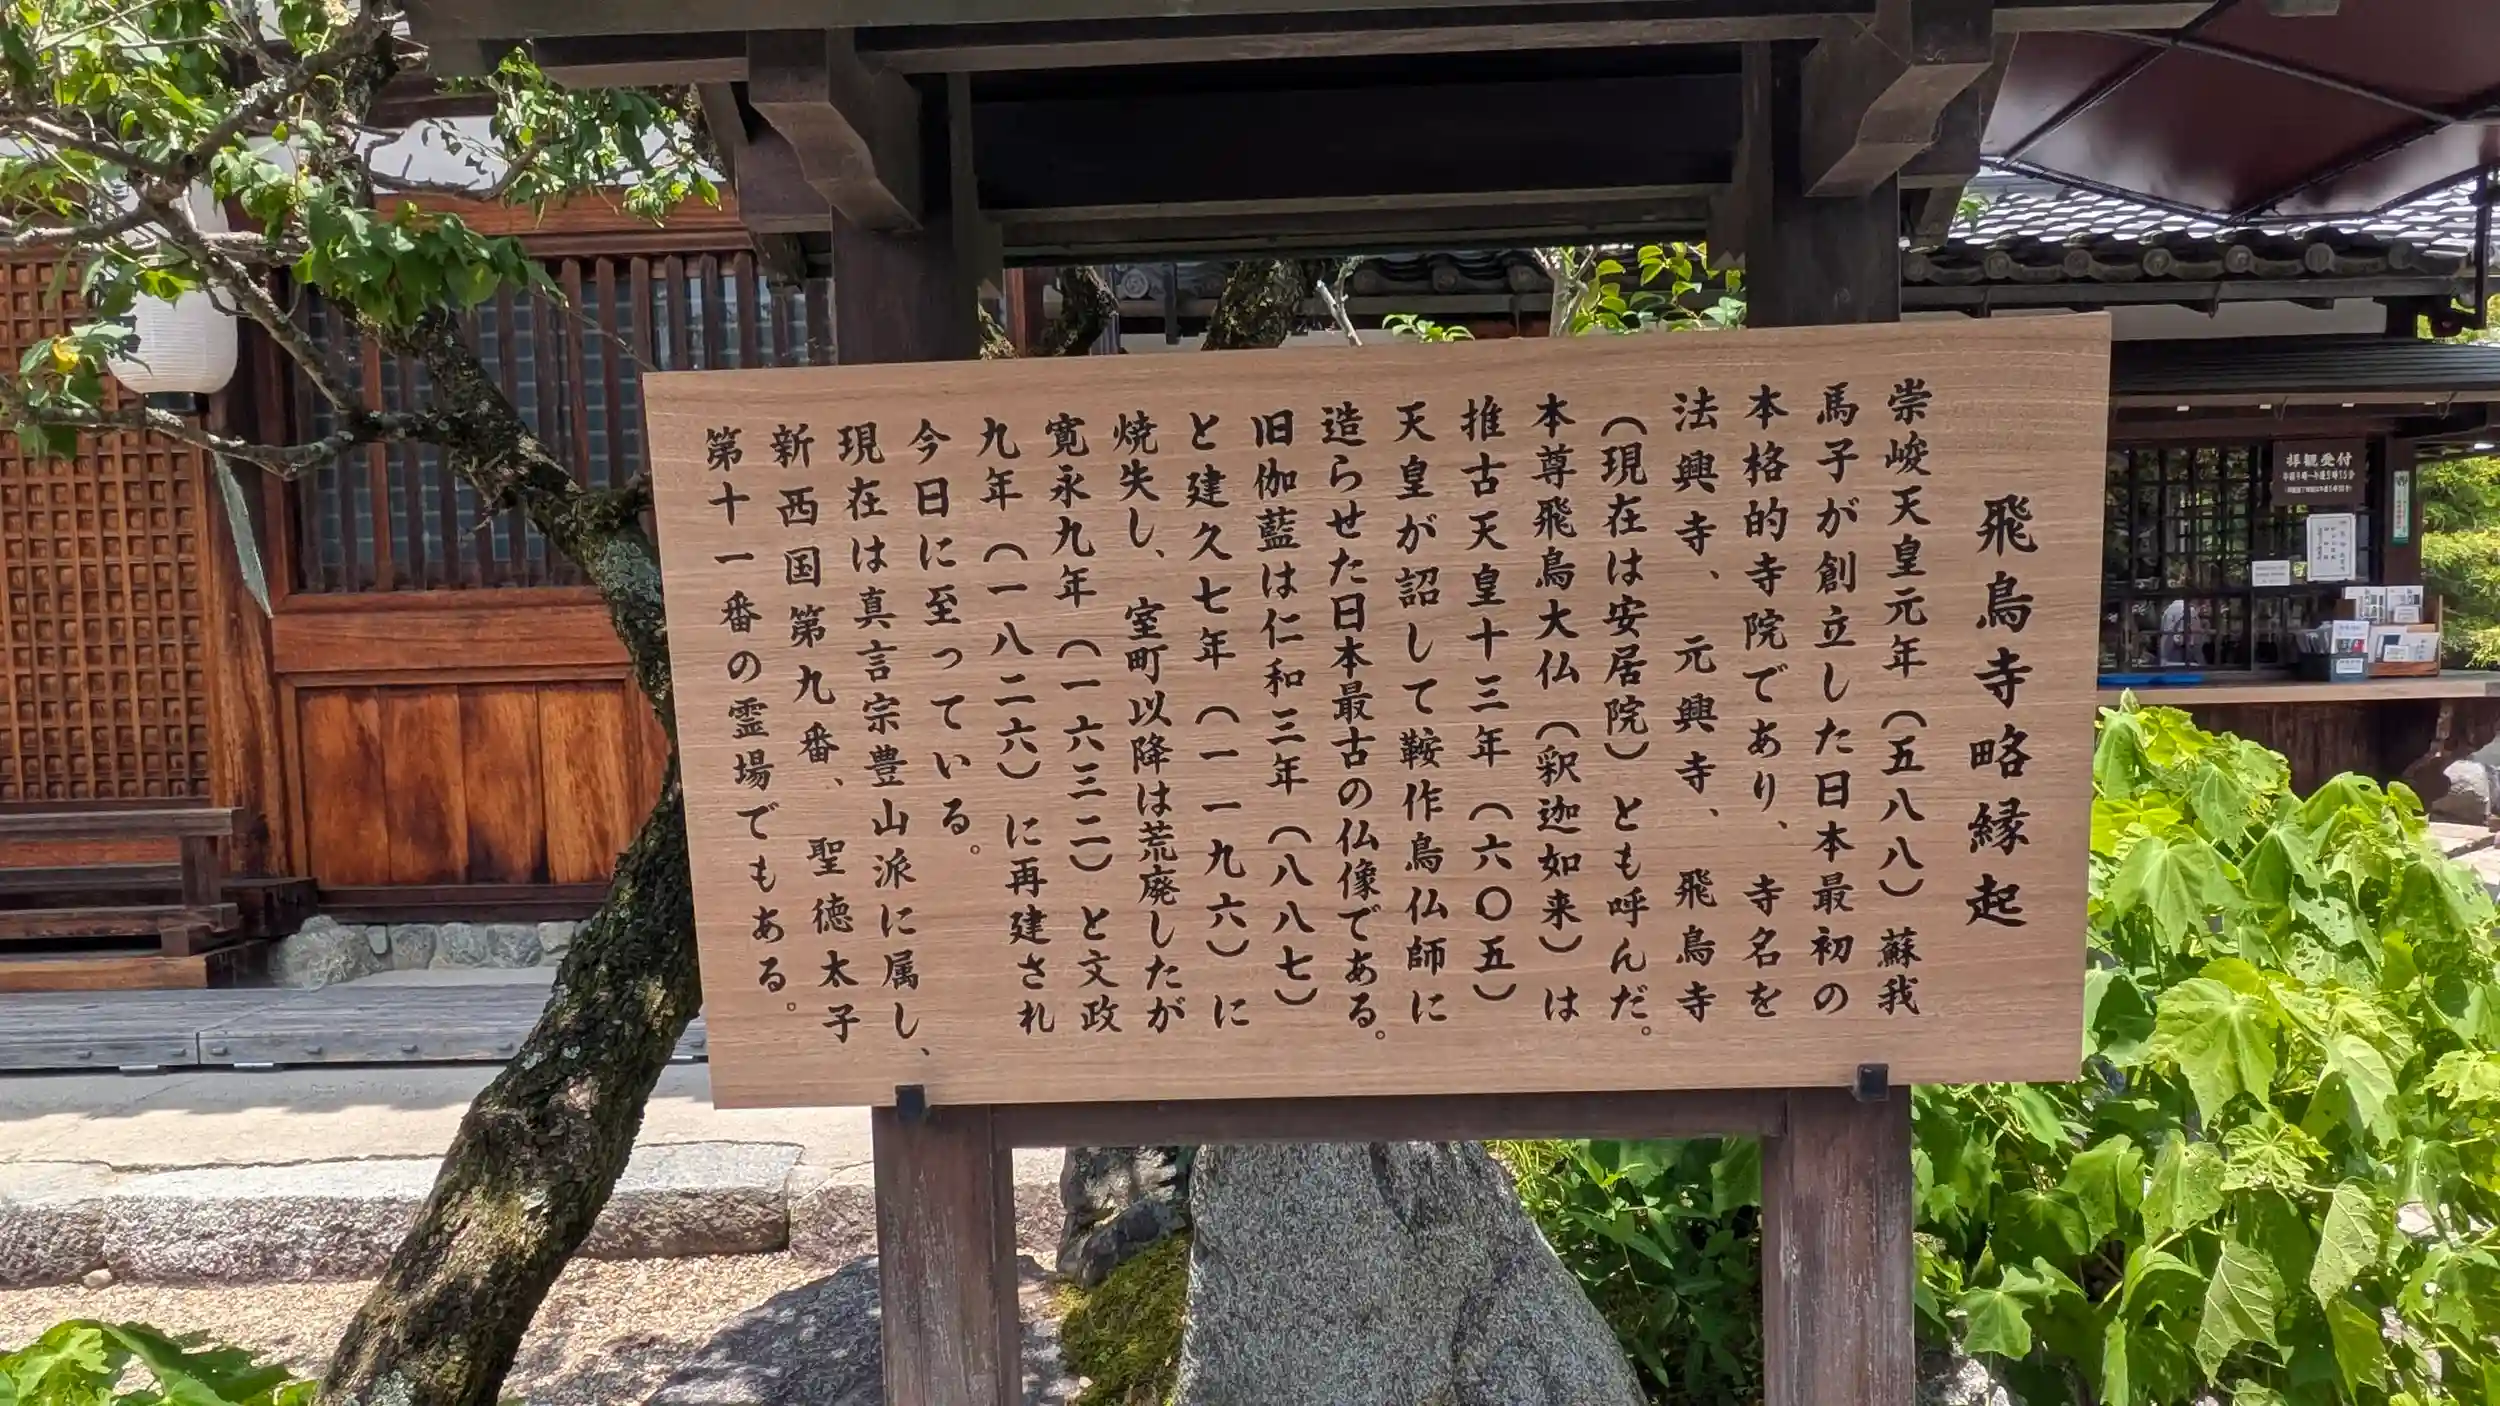 飛鳥寺略縁起
崇峻天皇元年(五八八)蘇我
馬子が創立した日本最初の
本格的寺院であり、寺名を
法興寺、元興寺、飛鳥寺
(現在は安居院)とも呼んだ。
本尊飛鳥大仏(釈迦如来)は
推古天皇十三年(六〇五)
天皇が詔して鞍作鳥仏師に
造らせた日本最古の仏像である。
旧伽藍は仁和三年(八八七)
と建久七年(一一九六)に
焼失し、室町以降は荒廃したが
寛永九年(一六三二)と文政
九年(一八二六)に再建され
今日に至っている。
現在は真言宗豊山派に属し、
新西国第九番、聖徳太子
第十一番の霊場でもある。
拝観受付